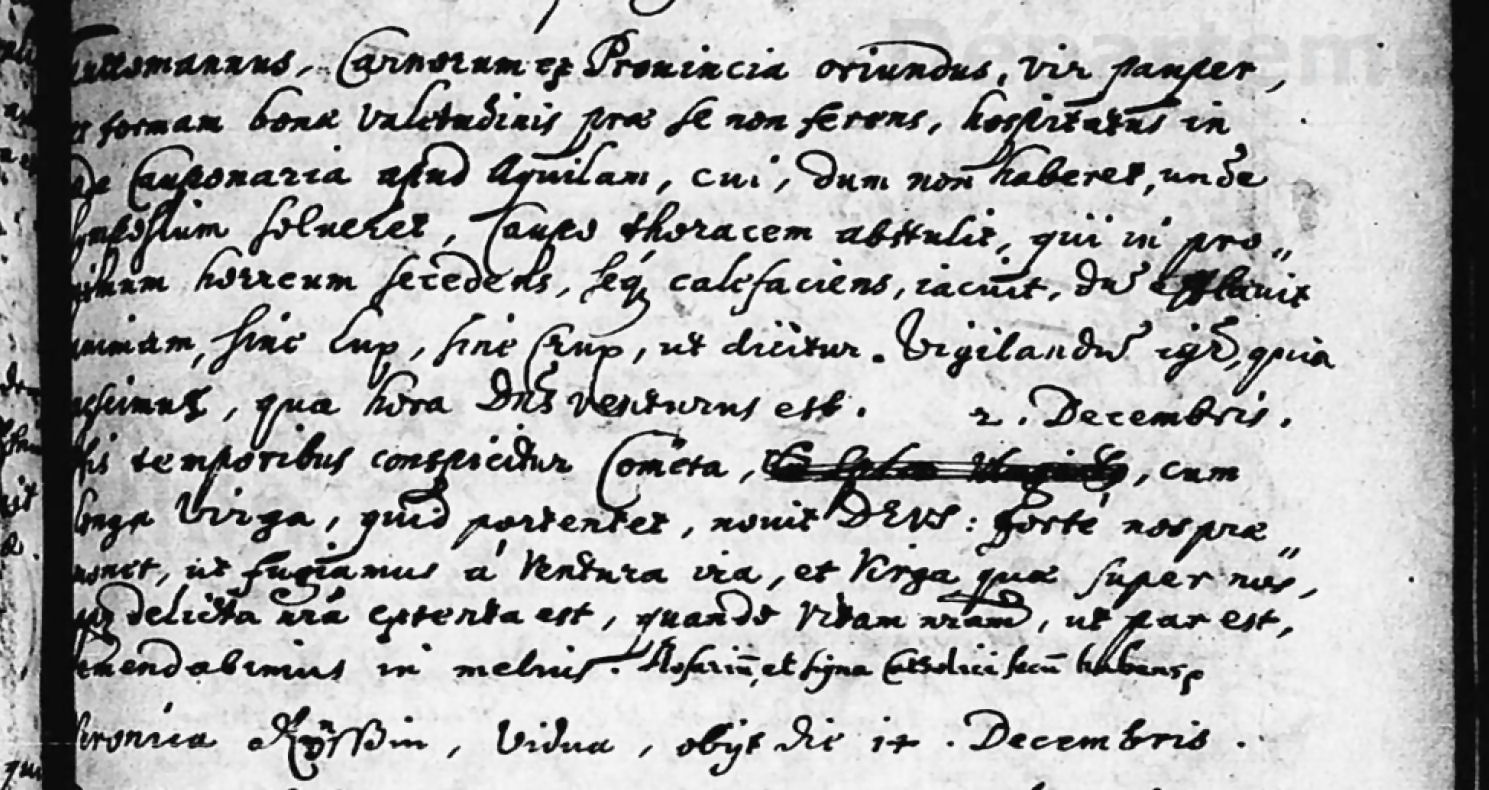 Carnorum ex Provincia oriundus, vir pauper,
et formam bonæ valetudinis præ se non ferens, hospitatus in
Cauponaria apud Aquilam, cui, dum non haberet, unde
symposium solveret, Caupo thoracem abstulit, qui in pro„
horreum secedens, seq̃ calefaciens, iacuit, dũ efflavit
animam, sine lup, sine Crup, ut dicitur. Vigilandũ igr̃, quia
nescimus, qua hora Dñs venturus est. 2. Decembris.
His temporibus conspicitur Cometa, cum
longa Virga, quid portentet, novit DEVS: forté nos præ„
monet, ut fugiamus á Ventura ira, et Virga quæ super nos,
delicta nr̃a extenta est, quando Vitam nr̃am, ut par est,
emendabimus in melius. Rosariũ, et signa Catholici secũ habens
Vidua, obijt die 17. Decembris.